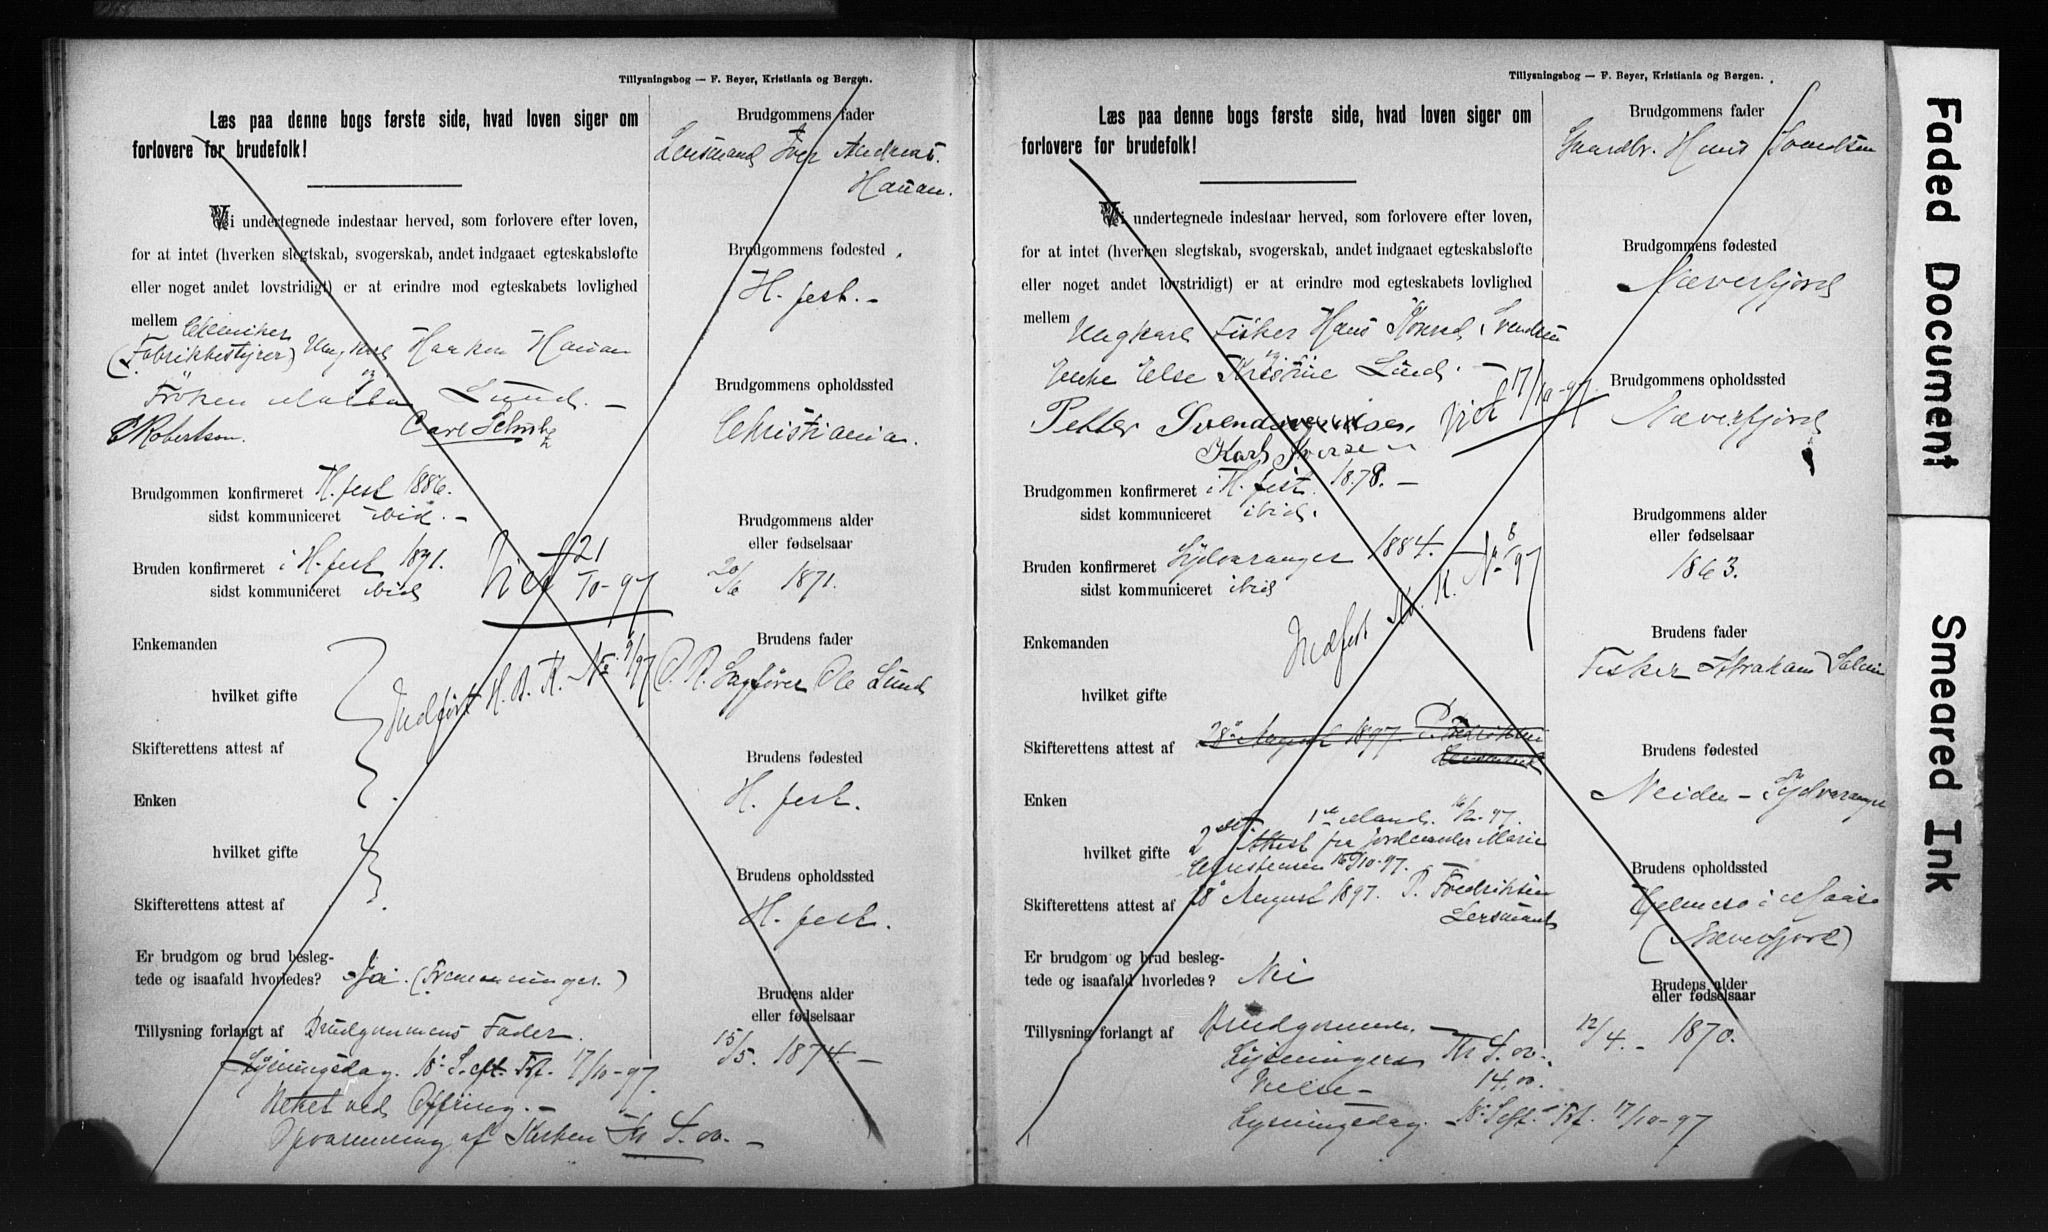 Tillysningsbog — F. Beyer, Kristiania og Bergen.
Læs paa denne bogs første side, hvad loven siger om
forlovere for brudefolk!
Vi undertegnede indestaar herved, som forlovere efter loven,
for at intet (hverken slegtskab, svogerskab, andet indgaaet egteskabsløfte
eller noget andet lovstridigt) er at erindre mod egteskabets lovlighed
mellem Kemiker
(Fabrikbestyrer) Ungkarl Haakon Hauan
og
Fröken Malla Lund. —
Robertson. Carl Schultz
Brudgommen konfirmeret H.fest 1886.
sidst kommuniceret ibid. —
Bruden konfirmeret i H.fest 1891.
sidst kommuniceret ibid
Viet 21/10-97
Enkemanden
hvilket gifte
Indført H. B. K. No 9/97
Skifterettens attest af
Enken
hvilket gifte
Skifterettens attest af
Er brudgom og brud besleg-
tede og isaafald hvorledes? Ja. (Fremenninger.)
Tillysning forlangt af Brudgommens Fader.
Lysningsdag. 18. S. eft. Tref. 17/10-97.
Viet ved Offring. —
Opvarmning af Kirken Kr 4.00. —
Brudgommens fader
Lensmand Iver Andreas
Hauan.
Brudgommens fødested
H. fest. —
Brudgommens opholdssted
Christiania.
Brudgommens alder
eller fødselsaar
20/6 1871.
Brudens fader
O. R. Sagfører Ole Lund
Brudens fødested
H. fest.
Brudens opholdssted
H. fest.
Brudens alder
eller fødselsaar
15/5. 1874 —
Tillysningsbog — F. Beyer, Kristiania og Bergen.
Læs paa denne bogs første side, hvad loven siger om
forlovere for brudefolk!
Vi undertegnede indestaar herved, som forlovere efter loven,
for at intet (hverken slegtskab, svogerskab, andet indgaaet egteskabsløfte
eller noget andet lovstridigt) er at erindre mod egteskabets lovlighed
mellem Ungkarl Fisker Hans Konrad Svendsen
og
Enke Else Kristine Lund. —
Petter Svendsen Viet 17/10-97.
Karl Iversen
Brudgommen konfirmeret i H. fest. 1878. —
sidst kommuniceret ibid.
Bruden konfirmeret Sydvaranger 1884.
sidst kommuniceret ibid
Indført K. No 8/97
Enkemanden
hvilket gifte
Skifterettens attest af 28. August 1897. P. Fredriksen
Lensmand
Enken
1ste Mand. 16/2-97.
hvilket gifte 2det. Attest fra Jordemoder Marie
Christensen 16/10-97.
Skifterettens attest af 28. August 1897. P. Fredriksen
Lensmand
Er brudgom og brud besleg-
tede og isaafald hvorledes? Nei
Tillysning forlangt af Brudgommen. —
Lysningen Kr 4.00.
Vielse — 14.00.
Lysningsdag. 18. S. eft. Tref. 17/10-97
Brudgommens fader
Gaardbr. Hans Svendsen
Brudgommens fødested
Næverfjord
Brudgommens opholdssted
Næverfjord
Brudgommens alder
eller fødselsaar
1863.
Brudens fader
Fisker Abraham
Brudens fødested
Neiden — Sydvaranger
Brudens opholdssted
Hjelmsø i Maasø
(Næverfjord)
Brudens alder
eller fødselsaar
12/4. — 1870.
Faded Document
Smeared Ink